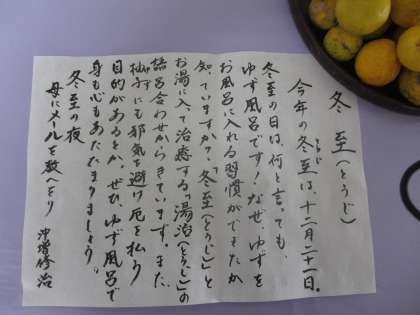 冬至(とうじ)
今年の冬至は、十二月二十一日。
とうじ
冬至の日は、何と言っても、
ゆず風呂です!なぜ、ゆずを
お風呂に入れる習慣ができたか
知っていますか?、「冬至(とうじ)」と
お湯に入って治癒する「湯治(とうじ)」の
語呂合わせからきています。また、
柚子にも邪気を避け厄を払う
ゆず
目的があるとか。ぜひ、ゆず風呂で
身も心もあたたまりましょう。
冬至の夜
母にメールを数へをり
沖増修治